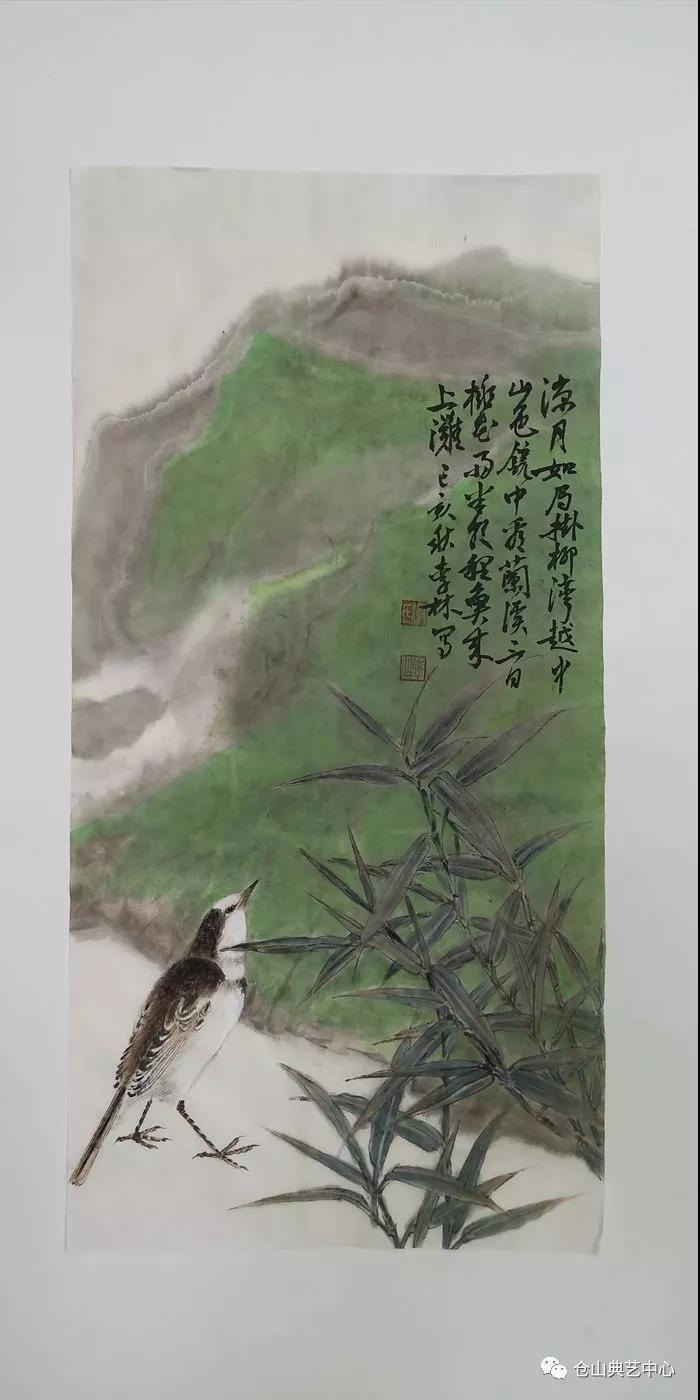 涼月如眉掛柳湾越中
山色鏡中看蘭溪三日
桃花雨半夜鯉魚來
上灘己亥秋李林写
仓山典艺中心